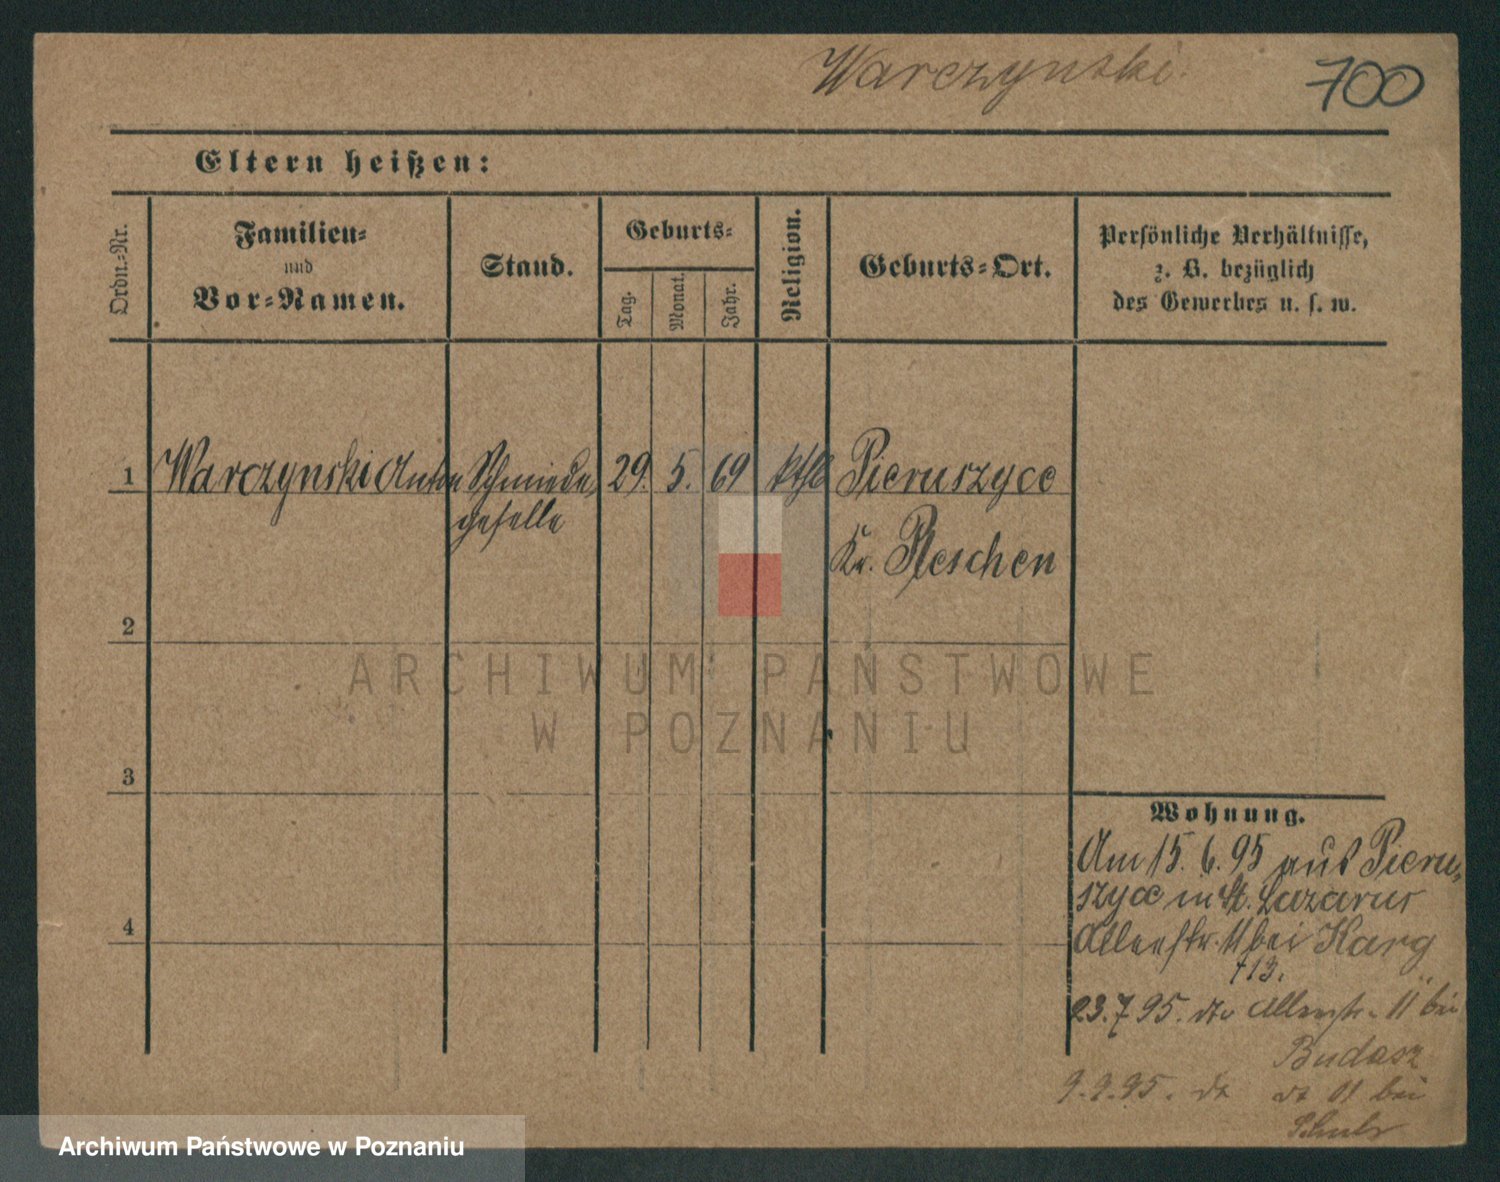 Warczynski.
700
Eltern heißen:
Ordn.-Nr.
Familien-
und
Vor-Namen.
Stand.
Geburts-
Tag.
Monat.
Jahr.
Religion.
Geburts-Ort.
Persönliche Verhältnisse,
z. B. bezüglich
des Gewerbes u. s. w.
1
Warczynski Anton
Schmiede
geselle
29.
5.
69
kth
Pieruszyce
Kr. Pleschen
2
3
4
Wohnung.
Am 15. 6. 95 aus Pieru-
szyce in St. Lazarus
Allerstr. 11 bei Karg
13.
23. 7 95. do Allerstr. 11 bei
Budasz
9. 9. 95. do do 01 bei
Schulz
ARCHIWUM PAŃSTWOWE
W POZNANIU
Archiwum Państwowe w Poznaniu